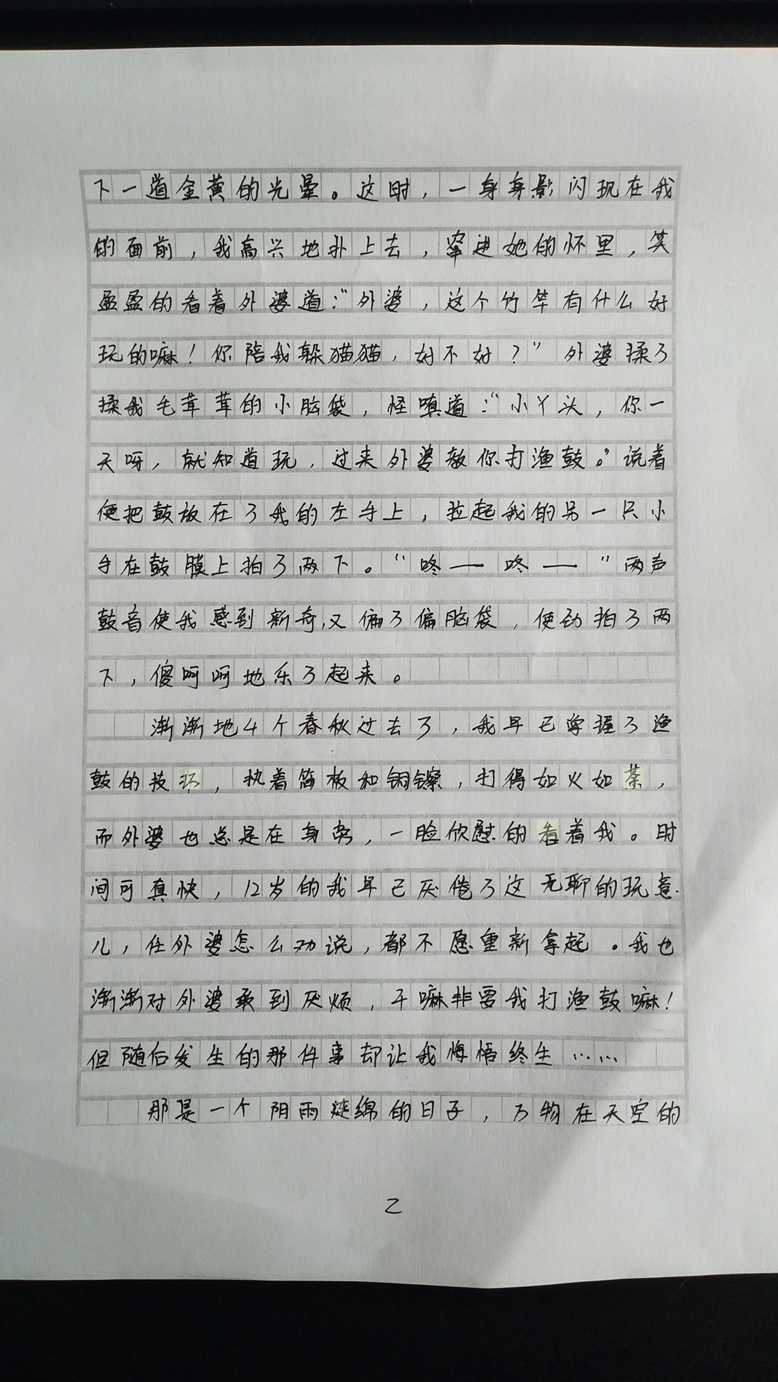 下一道金黄的光晕。这时，一身身影闪现在我
的面前，我高兴地扑上去，窜进她的怀里，笑
盈盈的看着外婆道：“外婆，这个竹竿有什么好
玩的嘛！你陪我躲猫猫，好不好？”外婆揉了
揉我毛茸茸的小脑袋，怪嗔道：“小丫头，你一
天呀，就知道玩，过来外婆教你打渔鼓。”说着
便把鼓放在了我的左手上，拉起我的另一只小
手在鼓膜上拍了两下。“咚——咚——”两声
鼓音使我感到新奇，又偏了偏脑袋，使劲拍了两
下，傻呵呵地乐了起来。
渐渐地4个春秋过去了，我早已掌握了渔
鼓的技巧，执着简板和铜镲，打得如火如荼，
而外婆也总是在身旁，一脸欣慰的看着我。时
间可真快，12岁的我早已厌倦了这无聊的玩意
儿，任外婆怎么劝说，都不愿重新拿起。我也
渐渐对外婆感到厌烦，干嘛非要我打渔鼓嘛！
但随后发生的那件事却让我悔悟终生……
那是一个阴雨延绵的日子，万物在天空的
2